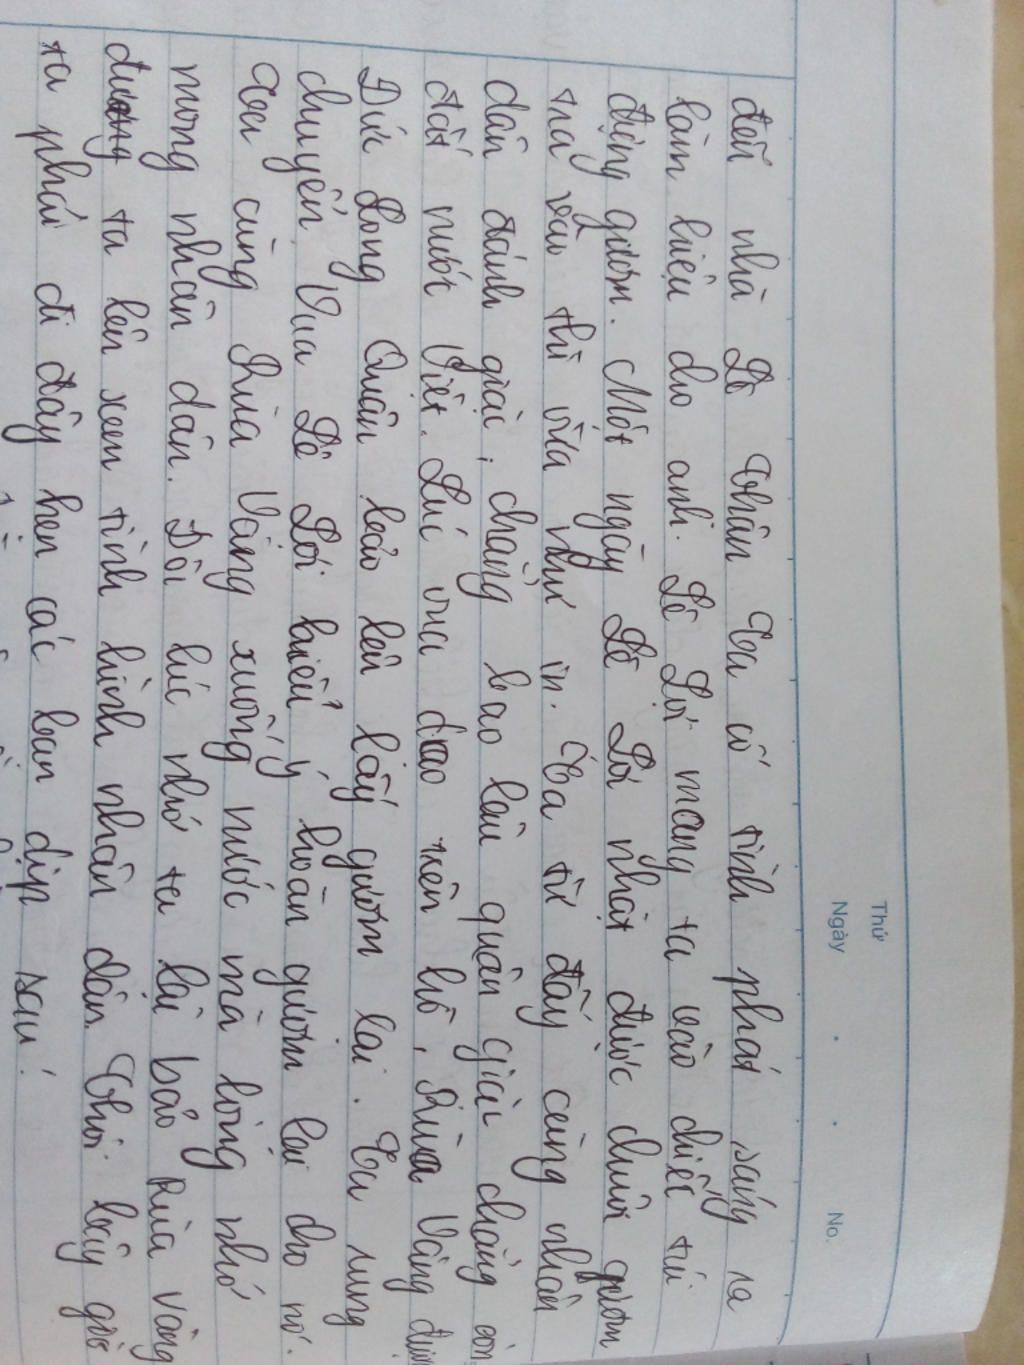 Thứ
Ngày . . No.
đến nhà Lê Thận. Ta cố tình phát sáng ra
làm hiệu cho anh. Lê Lợi mang ta vào chiếc túi
đựng gươm. Một ngày Lê Lợi nhặt được chuôi gươm
tra vào thì vừa như in. Ta từ đấy cùng nhân
dân đánh giặc, chẳng bao lâu quân giặc chẳng còn
đất nước Việt. Lúc vua dạo trên hồ, Rùa Vàng được
Đức Long Quân bảo lên lấy gươm lại. Ta rung
chuyển, Vua Lê Lợi hiểu ý hoàn gươm lại cho nó.
Ta cùng Rùa Vàng xuống nước mà lòng nhớ
mong nhân dân. Đôi lúc nhớ ta lại bảo Rùa vàng
đương ta lên xem tình hình nhân dân. Thôi bây giờ
ta phải đi đây hẹn các bạn dịp sau!